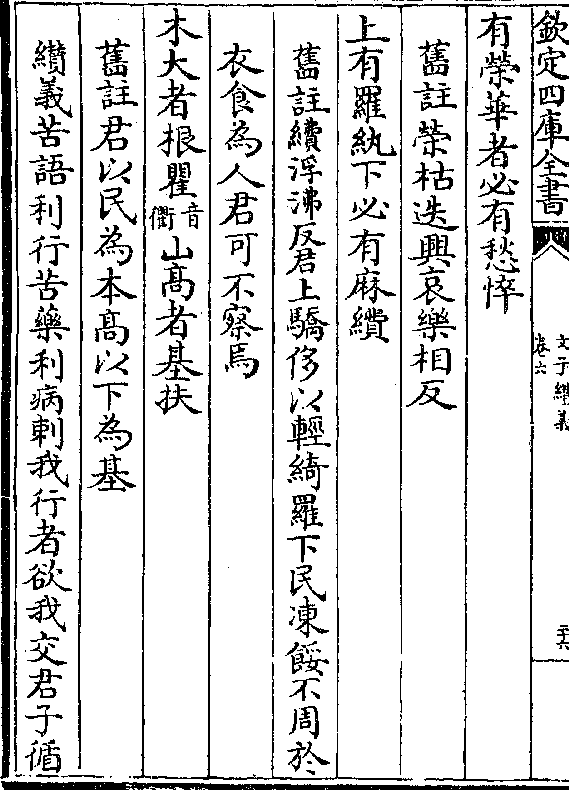 欽定四庫全書
文子纘義
卷六
二六
有榮華者必有愁悴
舊註榮枯迭興哀樂相反
上有羅紈下必有麻繢
舊註繢浮沸反君上驕侈以輕綺羅下民凍餒不周於
衣食為人君可不察焉
木大者根瞿音衢山髙者基扶
舊註君以民為本髙以下為基
纘義苦語利行苦藥利病刺我行者欲我交君子循